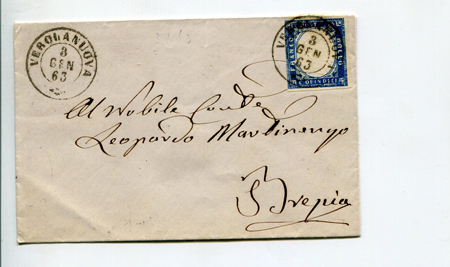 VEROLANUOVA
3
GEN
63
VEROLANUOVA
3
GEN
63
FRANCO
BOLLO
C. QUINDICI
Al Nobile Conte
Leopardo Martinengo
Brescia